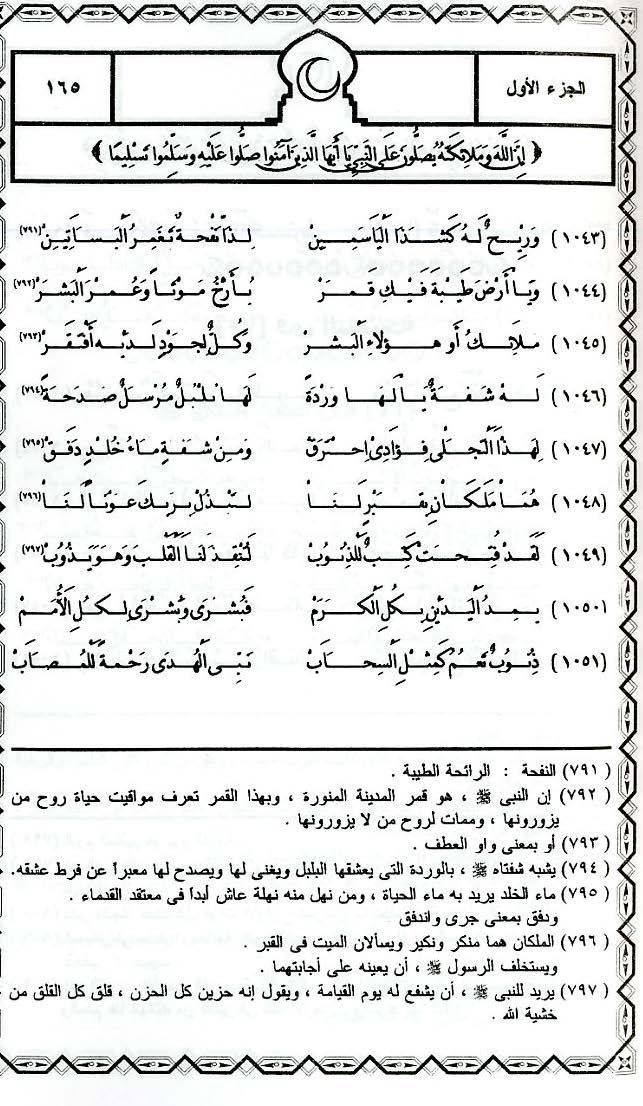 الجزء الأول
١٦٥
﴿ إِنَّ اللَّهَ وَمَلَائِكَتَهُ يُصَلُّونَ عَلَى النَّبِيِّ يَا أَيُّهَا الَّذِينَ آمَنُوا صَلُّوا عَلَيْهِ وَسَلِّمُوا تَسْلِيمًا ﴾
(١٠٤٣) وَرِيحٌ لَهُ كَشَذَا الْيَاسَمِينْ لِذَا نَفْحَةٌ تَغْمِرُ الْبَسَاتِينْ (٧٩١)
(١٠٤٤) وَيَا أَرْضَ طِيبَةَ فِيكِ قَمَرْ يُأَرِّخُ مَوْتًا وَعُمْرَ الْبَشَرْ (٧٩٢)
(١٠٤٥) مَلَائِكُ أَو هَؤُلَاءِ الْبَشَرْ وَكُلٌّ لِجُودٍ لَدَيْهِ افْتَقَرْ (٧٩٣)
(١٠٤٦) لَهُ شَفَةٌ يَالَهَا وَرْدَةً لَهَا بُلْبُلٌ مُرْسِلٌ صَدْحَةً (٧٩٤)
(١٠٤٧) لِهَذَا التَّجَلِّى فُؤَادِى احْتَرَقْ وَمِنْ شَفَةٍ مَاءُ خُلْدٍ دَفَقْ (٧٩٥)
(١٠٤٨) هُمَا مَلَكَانِ بِقَبْرٍ لَنَا لِتَبْذُلْ بِرَبِّكَ عَوْنًا لَنَا (٧٩٦)
(١٠٤٩) لَقَدْ فُتِحَتْ كُتُبٌ لِلذُّنُوبْ لِتُنْقِذَ لَنَا الْقَلْبَ وَهْوَ يَذُوبْ (٧٩٧)
(١٠٥٠) يَمِدُّ الْيَدَيْنِ بِكُلِّ الْكَرَمْ فَبُشْرَى وَبُشْرَى لِكُلِّ الْأُمَمْ
(١٠٥١) ذُنُوبٌ تَعُمُّ كَمِثْلِ السَّحَابْ نَبِىَّ الْهُدَى رَحْمَةً لِلْمُصَابْ
(٧٩١) النفحة : الرائحة الطيبة .
(٧٩٢) إن النبى ﷺ ، هو قمر المدينة المنورة ، وبهذا القمر تعرف مواقيت حياة روح من
يزورونها ، وممات لروح من لا يزورونها .
(٧٩٣) أو بمعنى واو العطف .
(٧٩٤) يشبه شفتاه ﷺ ، بالوردة التى يعشقها البلبل ويغنى لها ويصدح لها معبراً عن فرط عشقه.
(٧٩٥) ماء الخلد يريد به ماء الحياة ، ومن نهل منه نهلة عاش أبداً فى معتقد القدماء .
ودفق بمعنى جرى واندفق
(٧٩٦) الملكان هما منكر ونكير ويسألان الميت فى القبر .
ويستخلف الرسول ﷺ ، أن يعينه على أجابتهما .
(٧٩٧) يريد للنبى ﷺ ، أن يشفع له يوم القيامة ، ويقول إنه حزين كل الحزن ، قلق كل القلق من
خشية الله .